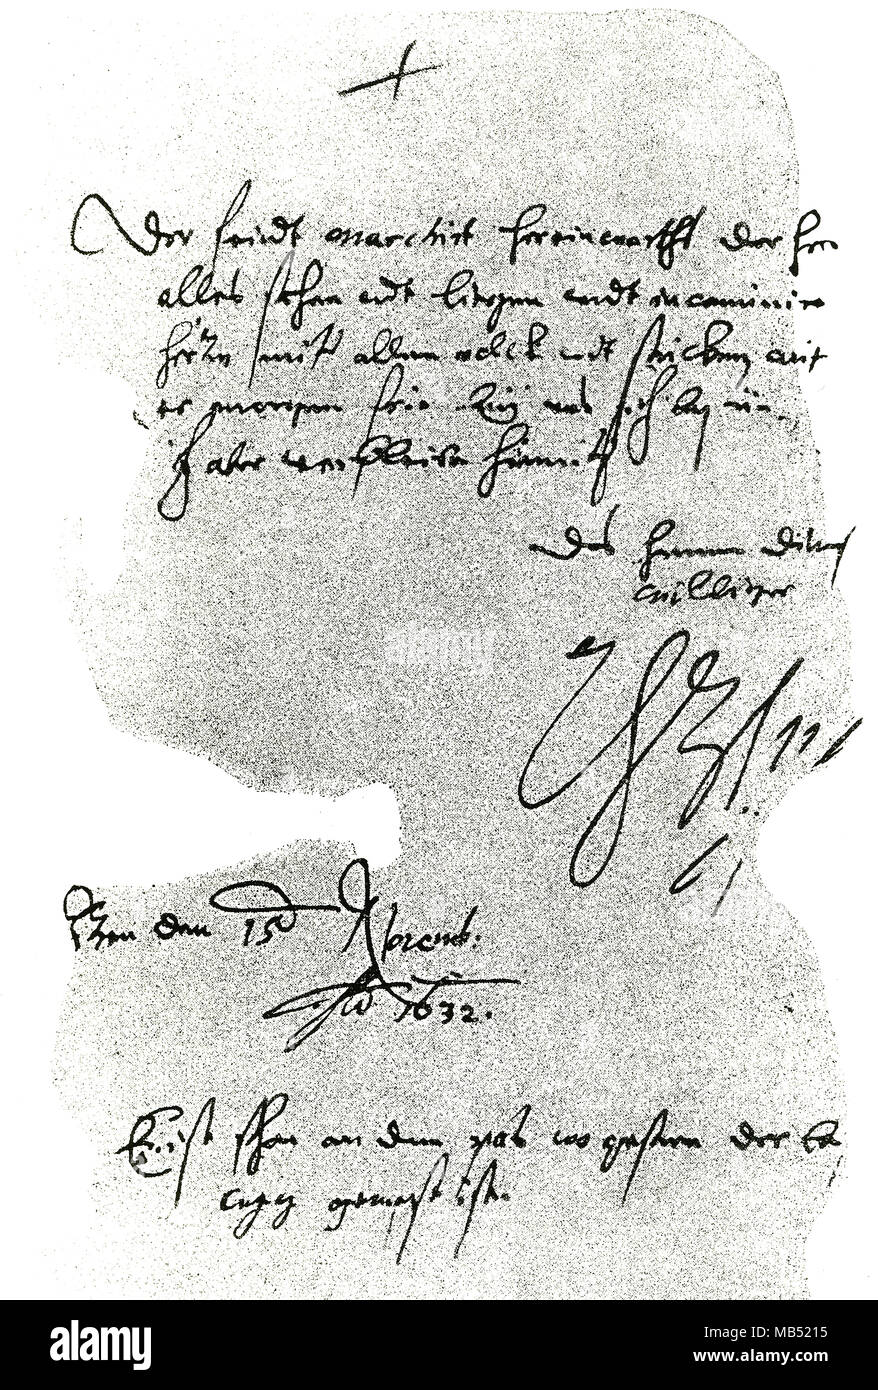 Der feindt marchirt hereinwarths der her
alles stehen undt liegen undt incaminire
herzu mitt allem volck undt stücken auf
er morgen frie bey uns sich
Ich aber verbleibe hiemitt
Des herren dienst
williger
zen den 15 Novemb:
Ao 1632.
Er ist schon an dem pas wo gestern der
weg gewest ist.
alamy
alamy
MB5215
www.alamy.com